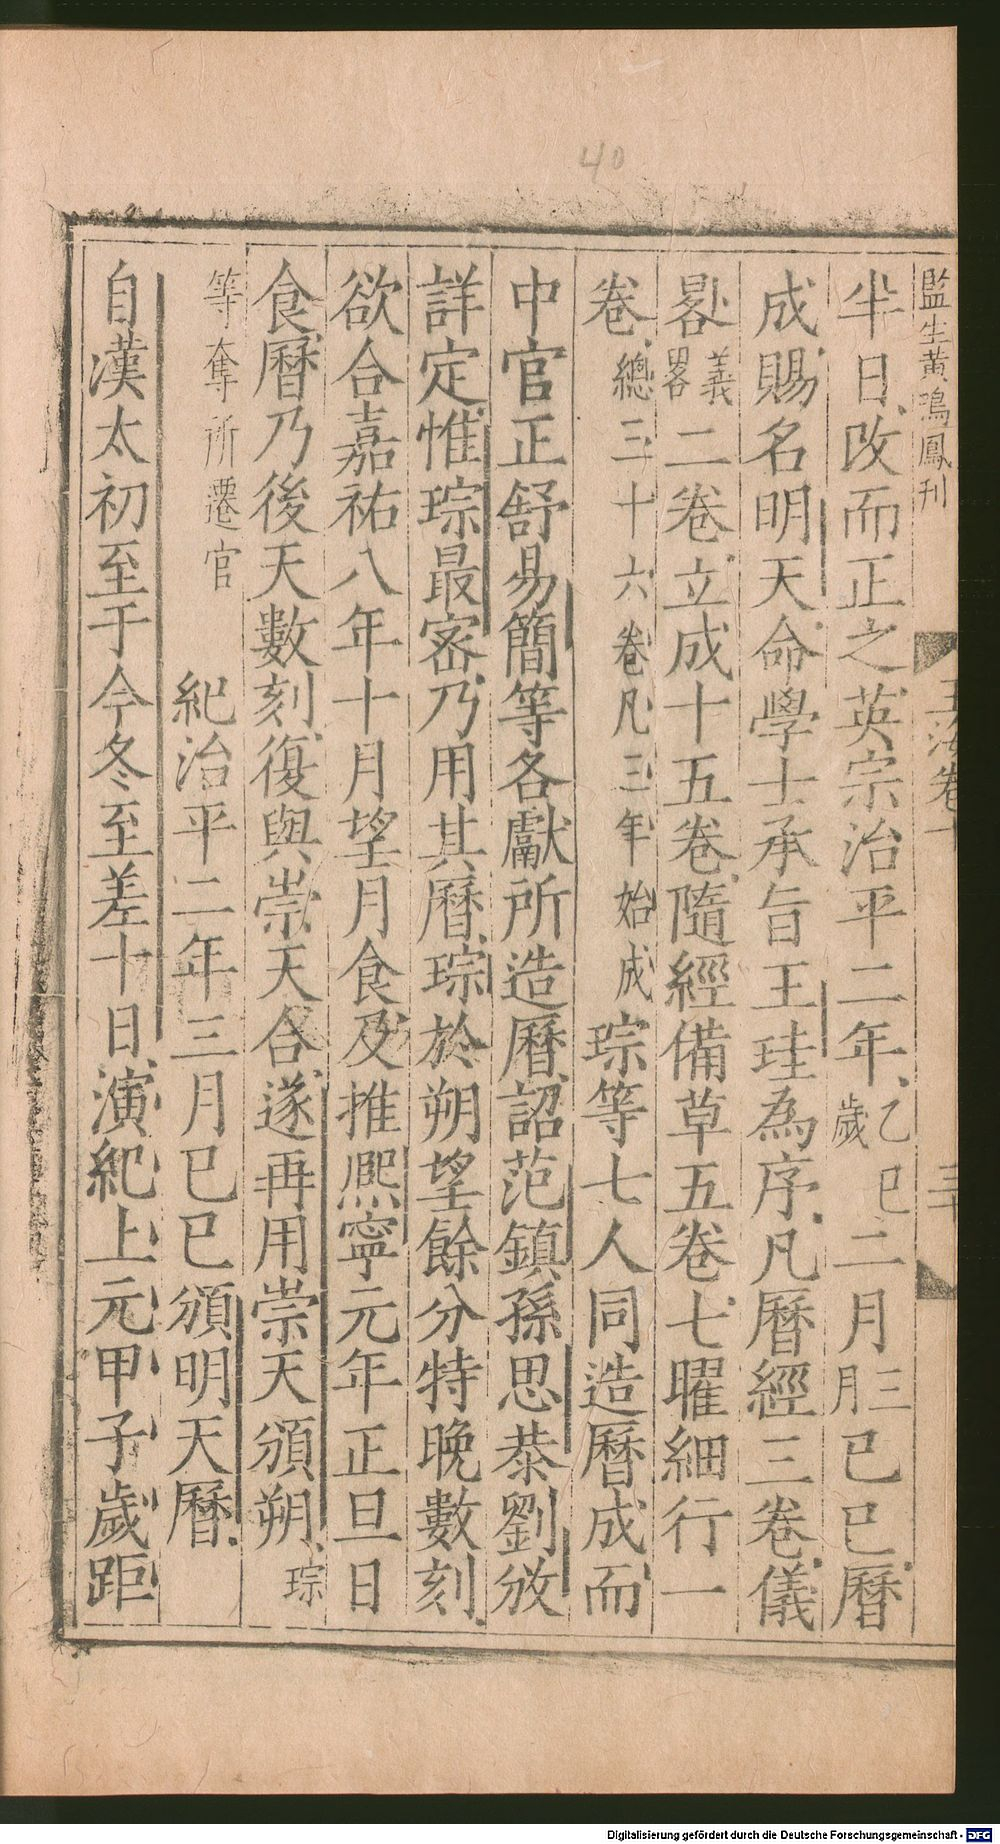 40
監生黃鳴鳳刊
玉海卷十
三十
半日改而正之英宗治平二年乙巳歲二月三月己巳曆
成賜名明天命學士承旨王珪為序凡曆經三卷儀
晷義畧二卷立成十五卷隨經備草五卷七曜細行一
卷總三十六卷凡三年始成琮等七人同造曆成而
中官正舒易簡等各獻所造曆詔范鎮孫思恭劉攽
詳定惟琮最密乃用其曆琮於朔望餘分特晚數刻
欲合嘉祐八年十月望月食及推熈寧元年正旦日
食曆乃後天數刻復與崇天合遂再用崇天頒朔琮
等奪所遷官紀治平二年三月己巳頒明天曆
自漢太初至于今冬至差十日演紀上元甲子歲距
Digitalisierung gefördert durch die Deutsche Forschungsgemeinschaft - DFG